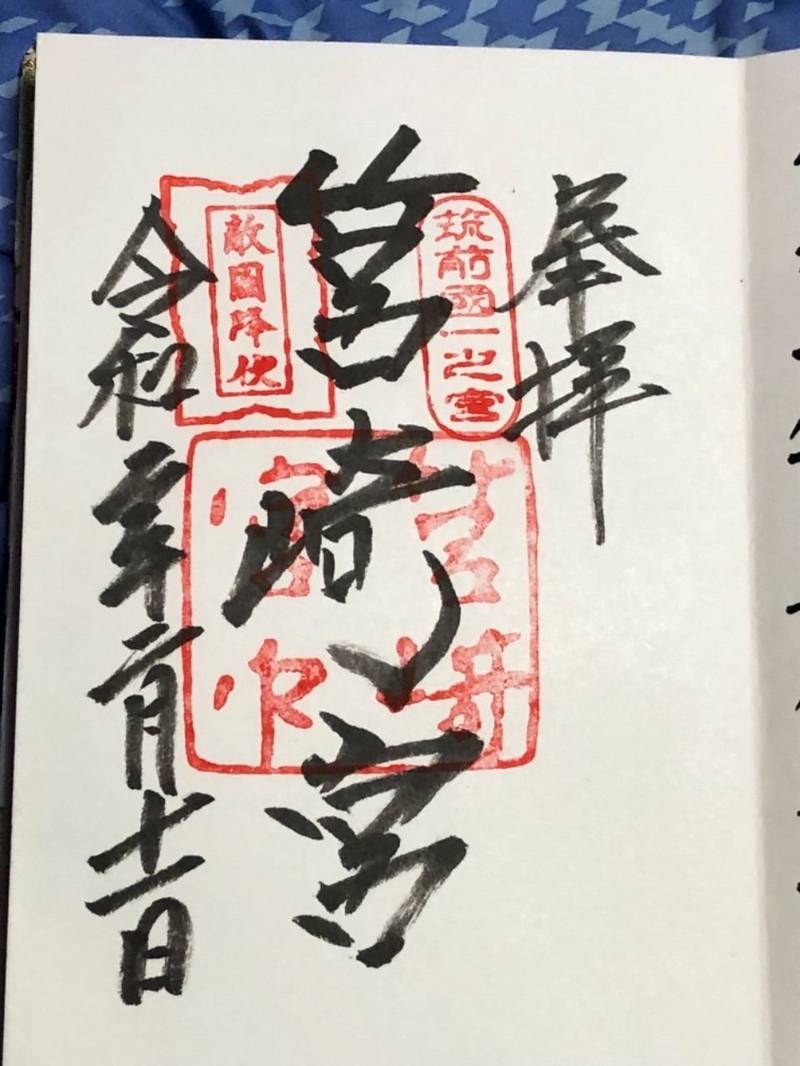 奉拝
筑前國一之宮
筥崎宮
筥崎宮印
敵國降伏
令和二年二月十一日